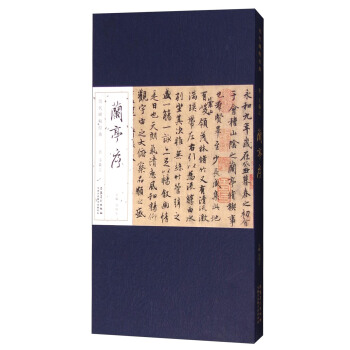 蘭亭序
永和九年歲在癸丑暮春之初會
于會稽山陰之蘭亭脩稧事
也群賢畢至少長咸集此地
有崇山峻領茂林脩竹又有清流激
湍暎帶左右引以為流觴曲水
列坐其次雖無絲竹管弦之
盛一觴一詠亦足以暢敘幽情
是日也天朗氣清惠風和暢仰
觀宇宙之大俯察品類之盛
蘭亭序